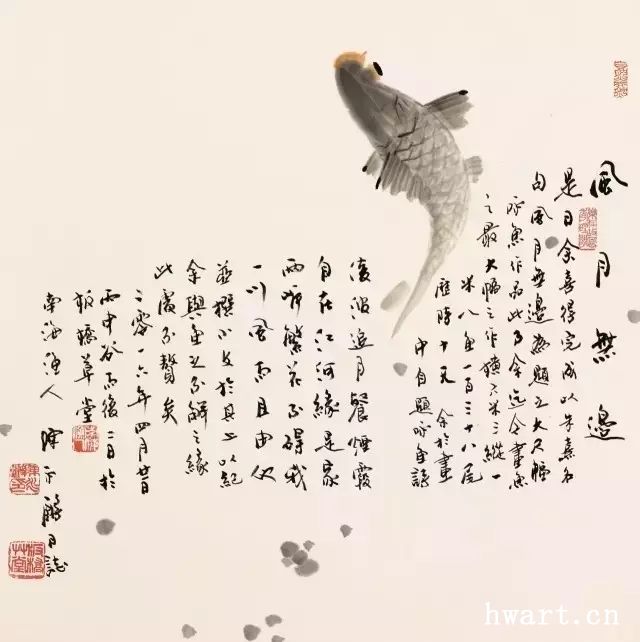 風月無邊
是日余喜得完成以朱熹名
句風月無邊為題之大尺幅
呼魚作品此乃余迄今畫魚
之最大幅之作橫六米三縱一
米八魚一百三十八尾
歷時十天 余於畫
中自題呼魚詩
凌波追月餐煙霞
自在江河緣是家
兩岸繁花不碍我
一川風雨且由他
並撰小文於其上以紀
余與魚之不解之緣
此處不贅矣
二零一六年四月廿日
丙申谷雨後二日於
板橋草堂
南海漁人 陳
hwart.cn